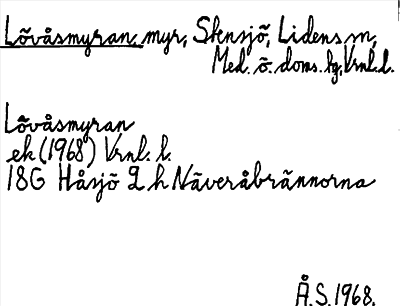 Lövåsmyran, myr, Stensjö, Lidens sn,
Med. ö. doms. hg, Vrnl. l.
Lövåsmyran
ek (1968) Vrnl. l.
18G Håsjö 2 h Näveråbrännorna
Å.S. 1968.